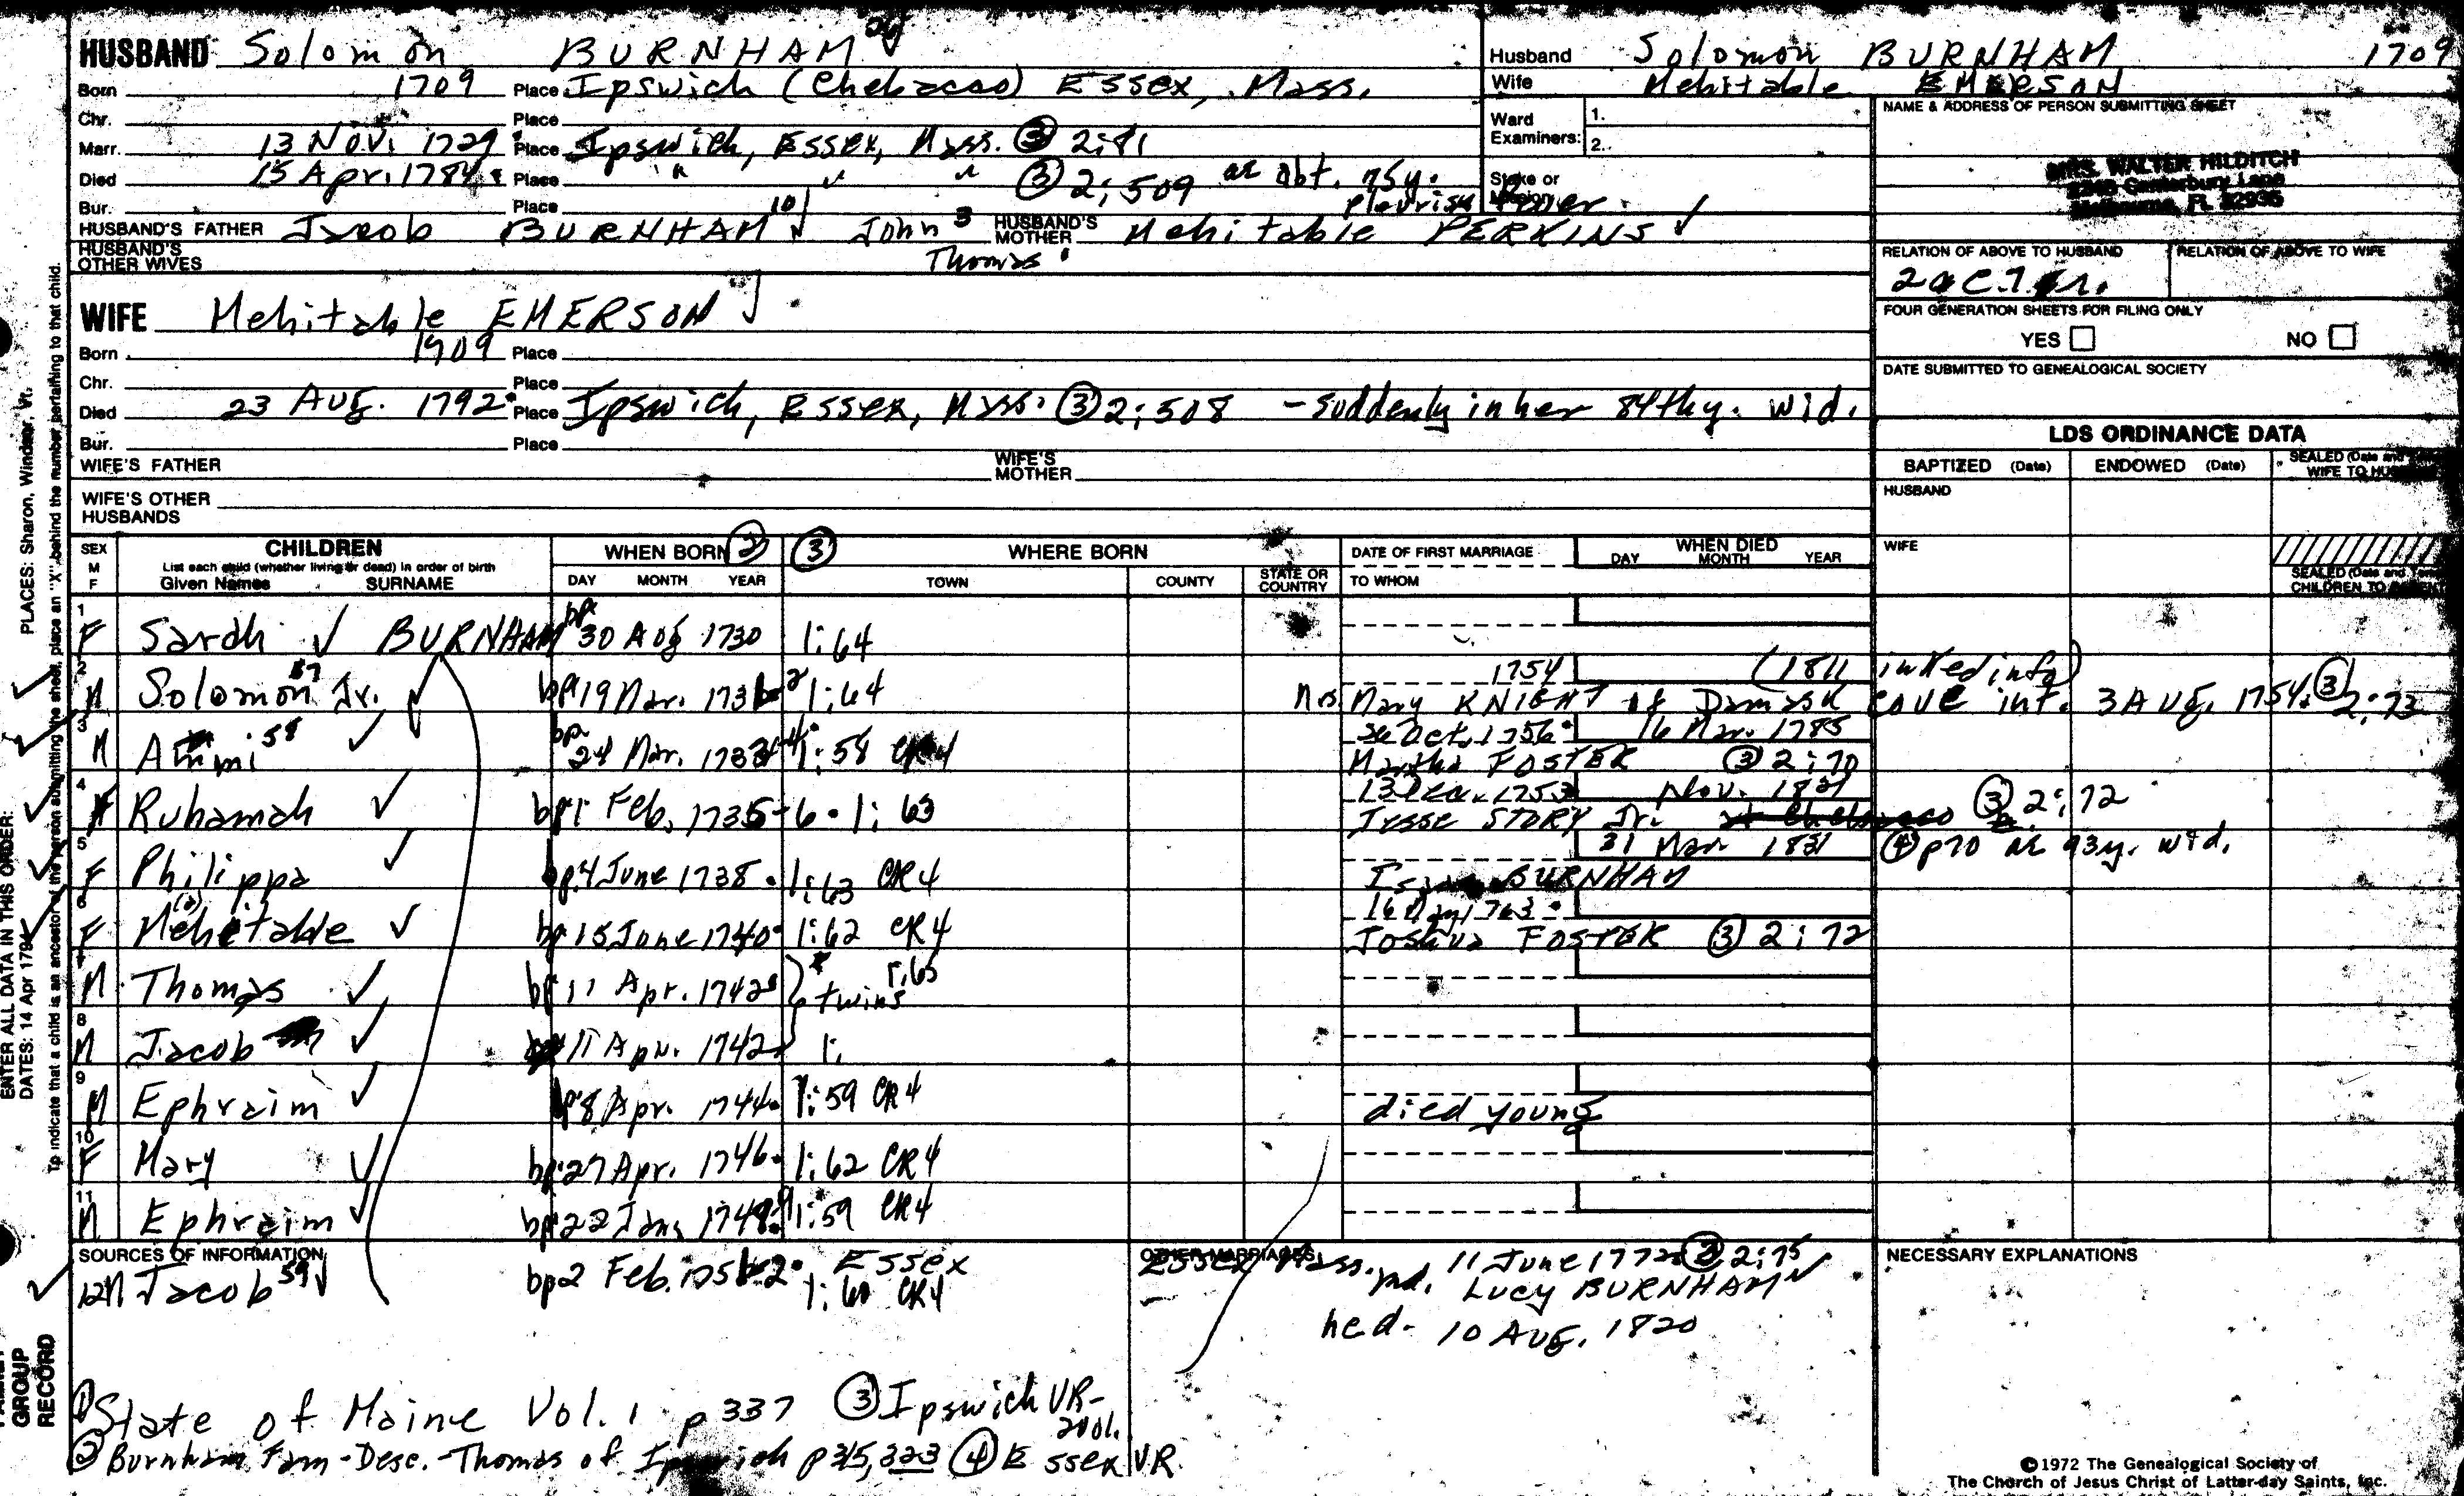 HUSBAND Solomon BURNHAM
Born 1709 Place Ipswich (Chebacco) Essex, Mass.
Chr. Place
Marr. 13 Nov. 1729 Place Ipswich, Essex, Mass. ③ 2:81
Died 15 Apr. 1784 Place " " " ③ 2:509 ae abt. 75y.
pleurisy fever.
Bur. Place
HUSBAND'S FATHER Jacob BURNHAM John 3 HUSBAND'S MOTHER Mehitable PERKINS ✓
HUSBAND'S OTHER WIVES Thomas
WIFE Mehitable EMERSON
Born 1709 Place
Chr. Place
Died 23 Aug. 1792 Place Ipswich, Essex, Mass. ③ 2:508 - suddenly in her 84th y. wid.
Bur. Place
WIFE'S FATHER WIFE'S MOTHER
WIFE'S OTHER HUSBANDS
Husband Solomon BURNHAM 1709
Wife Mehitable EMERSON
Ward Examiners: 1.
2.
Stake or
NAME & ADDRESS OF PERSON SUBMITTING SHEET
MRS. WALTER HILDITCH
Canterbury Lane
Melbourne, FL 32935
RELATION OF ABOVE TO HUSBAND RELATION OF ABOVE TO WIFE
FOUR GENERATION SHEETS FOR FILING ONLY
YES NO
DATE SUBMITTED TO GENEALOGICAL SOCIETY
LDS ORDINANCE DATA
BAPTIZED (Date) ENDOWED (Date) SEALED (Date and
WIFE TO
HUSBAND
WIFE
SEALED (Date and
CHILDREN TO
SEX M F CHILDREN
List each child (whether living or dead) in order of birth
Given Names SURNAME
WHEN BORN ② DAY MONTH YEAR
③ WHERE BORN TOWN COUNTY STATE OR COUNTRY
DATE OF FIRST MARRIAGE TO WHOM
WHEN DIED DAY MONTH YEAR
1 F Sarah ✓ BURNHAM bp 30 Aug 1730 1:64
2 M Solomon Jr. ✓ bp 19 Mar. 1731-2 1:64 1754 (1811 inked info)
Mrs Mary KNIGHT of Damask cove int. 3 Aug. 1754. ③ 2:73
3 M 58 ✓ bp 24 Mar. 1:58 26 Oct. 1756 16 Mar. 1785
Martha FOSTER ③ 2:70
4 F Ruhamah ✓ bp 1 Feb. 1735-6 1:63 Nov. 1821
Jesse STORY Jr. ③ 2:72
5 F Philippa ✓ bp 4 June 1738 1:63 CR4 31 Mar 1831 ④ p70 ae 93y. wid.
BURNHAM
6 F Mehitable ✓ bp 15 June 1740 1:62 CR4 16 May 1763
Joshua FOSTER ③ 2:72
7 M Thomas ✓ bp 11 Apr. 1742 twins 1:65
8 M Jacob ✓ 11 Apr. 1742 1:
9 M Ephraim ✓ bp 8 Apr. 1744 1:59 CR4 died young
10 F Mary ✓ bp 27 Apr. 1746 1:62 CR4
11 M Ephraim ✓ bp 22 Jan. 1748-9 1:59 CR4
SOURCES OF INFORMATION OTHER MARRIAGES NECESSARY EXPLANATIONS
12 M Jacob 59 ✓ bp 2 Feb. 1751-2 Essex Essex Mass. md. 11 June 1772 2:75
1:60 CR4 Lucy BURNHAM
he d. 10 Aug. 1820
① State of Maine Vol. 1 p 337 ③ Ipswich VR - 2 vol.
② Burnham Fam - Desc. - Thomas of Ipswich p 315, 323 ④ Essex VR
©1972 The Genealogical Society of
The Church of Jesus Christ of Latter-day Saints, Inc.
PLACES: Sharon, Windsor, Vt.
ENTER ALL DATA IN THIS ORDER:
DATES: 14 Apr 1794
To indicate that a child is an ancestor of the person submitting the sheet, place an "X" behind the number pertaining to that child.
GROUP
RECORD